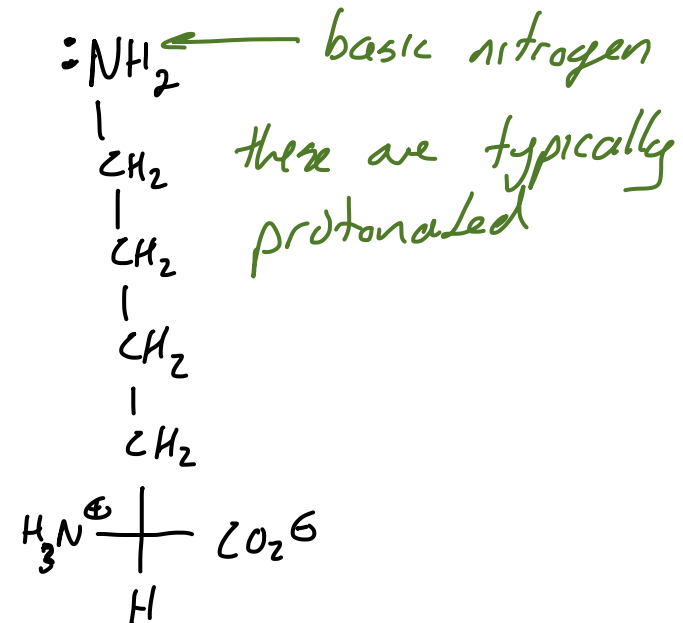 :NH₂ ← basic nitrogen
these are typically
CH₂
protonated
CH₂
CH₂
CH₂
H₃N⊕ CO₂⊖
H